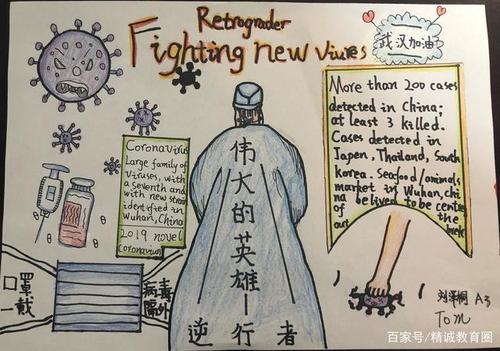 Retrograder
Fighting new viures
武汉加油
More than 200 cases
detected in China;
at least 3 killed.
Cases detected in
Japen, Thailand, South
Korea. Seafood/animals
market in Wuhan, chi
na be lived to be centre
of the
out break
Coronavirus
Large family of
viruses, with
a seventh and
with new strain
identified in
Wuhan, China
2019 novel
coronavirus
伟大的英雄
逆行者
口罩
一戴
病毒
隔外
刘泽桐 A3
Tom
百家号/精诚教育圈